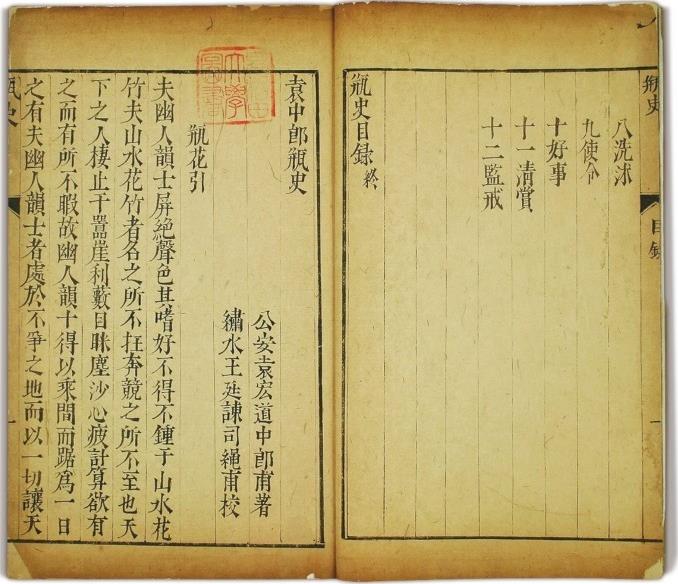 瓶史
目錄
一
八洗沐
九使令
十好事
十一清賞
十二監戒
瓶史目錄終
袁中郎瓶史
公安袁宏道中郎甫著
繡水王廷諫司繩甫校
瓶花引
夫幽人韻士屏絕聲色其嗜好不得不鍾于山水花
竹夫山水花竹者名之所不在奔競之所不至也天
下之人棲止于囂崖利藪目眯塵沙心疲計算欲有
之而有所不暇故幽人韻士得以乘間而踞爲一日
之有夫幽人韻士者處於不爭之地而以一切讓天
瓶史
一